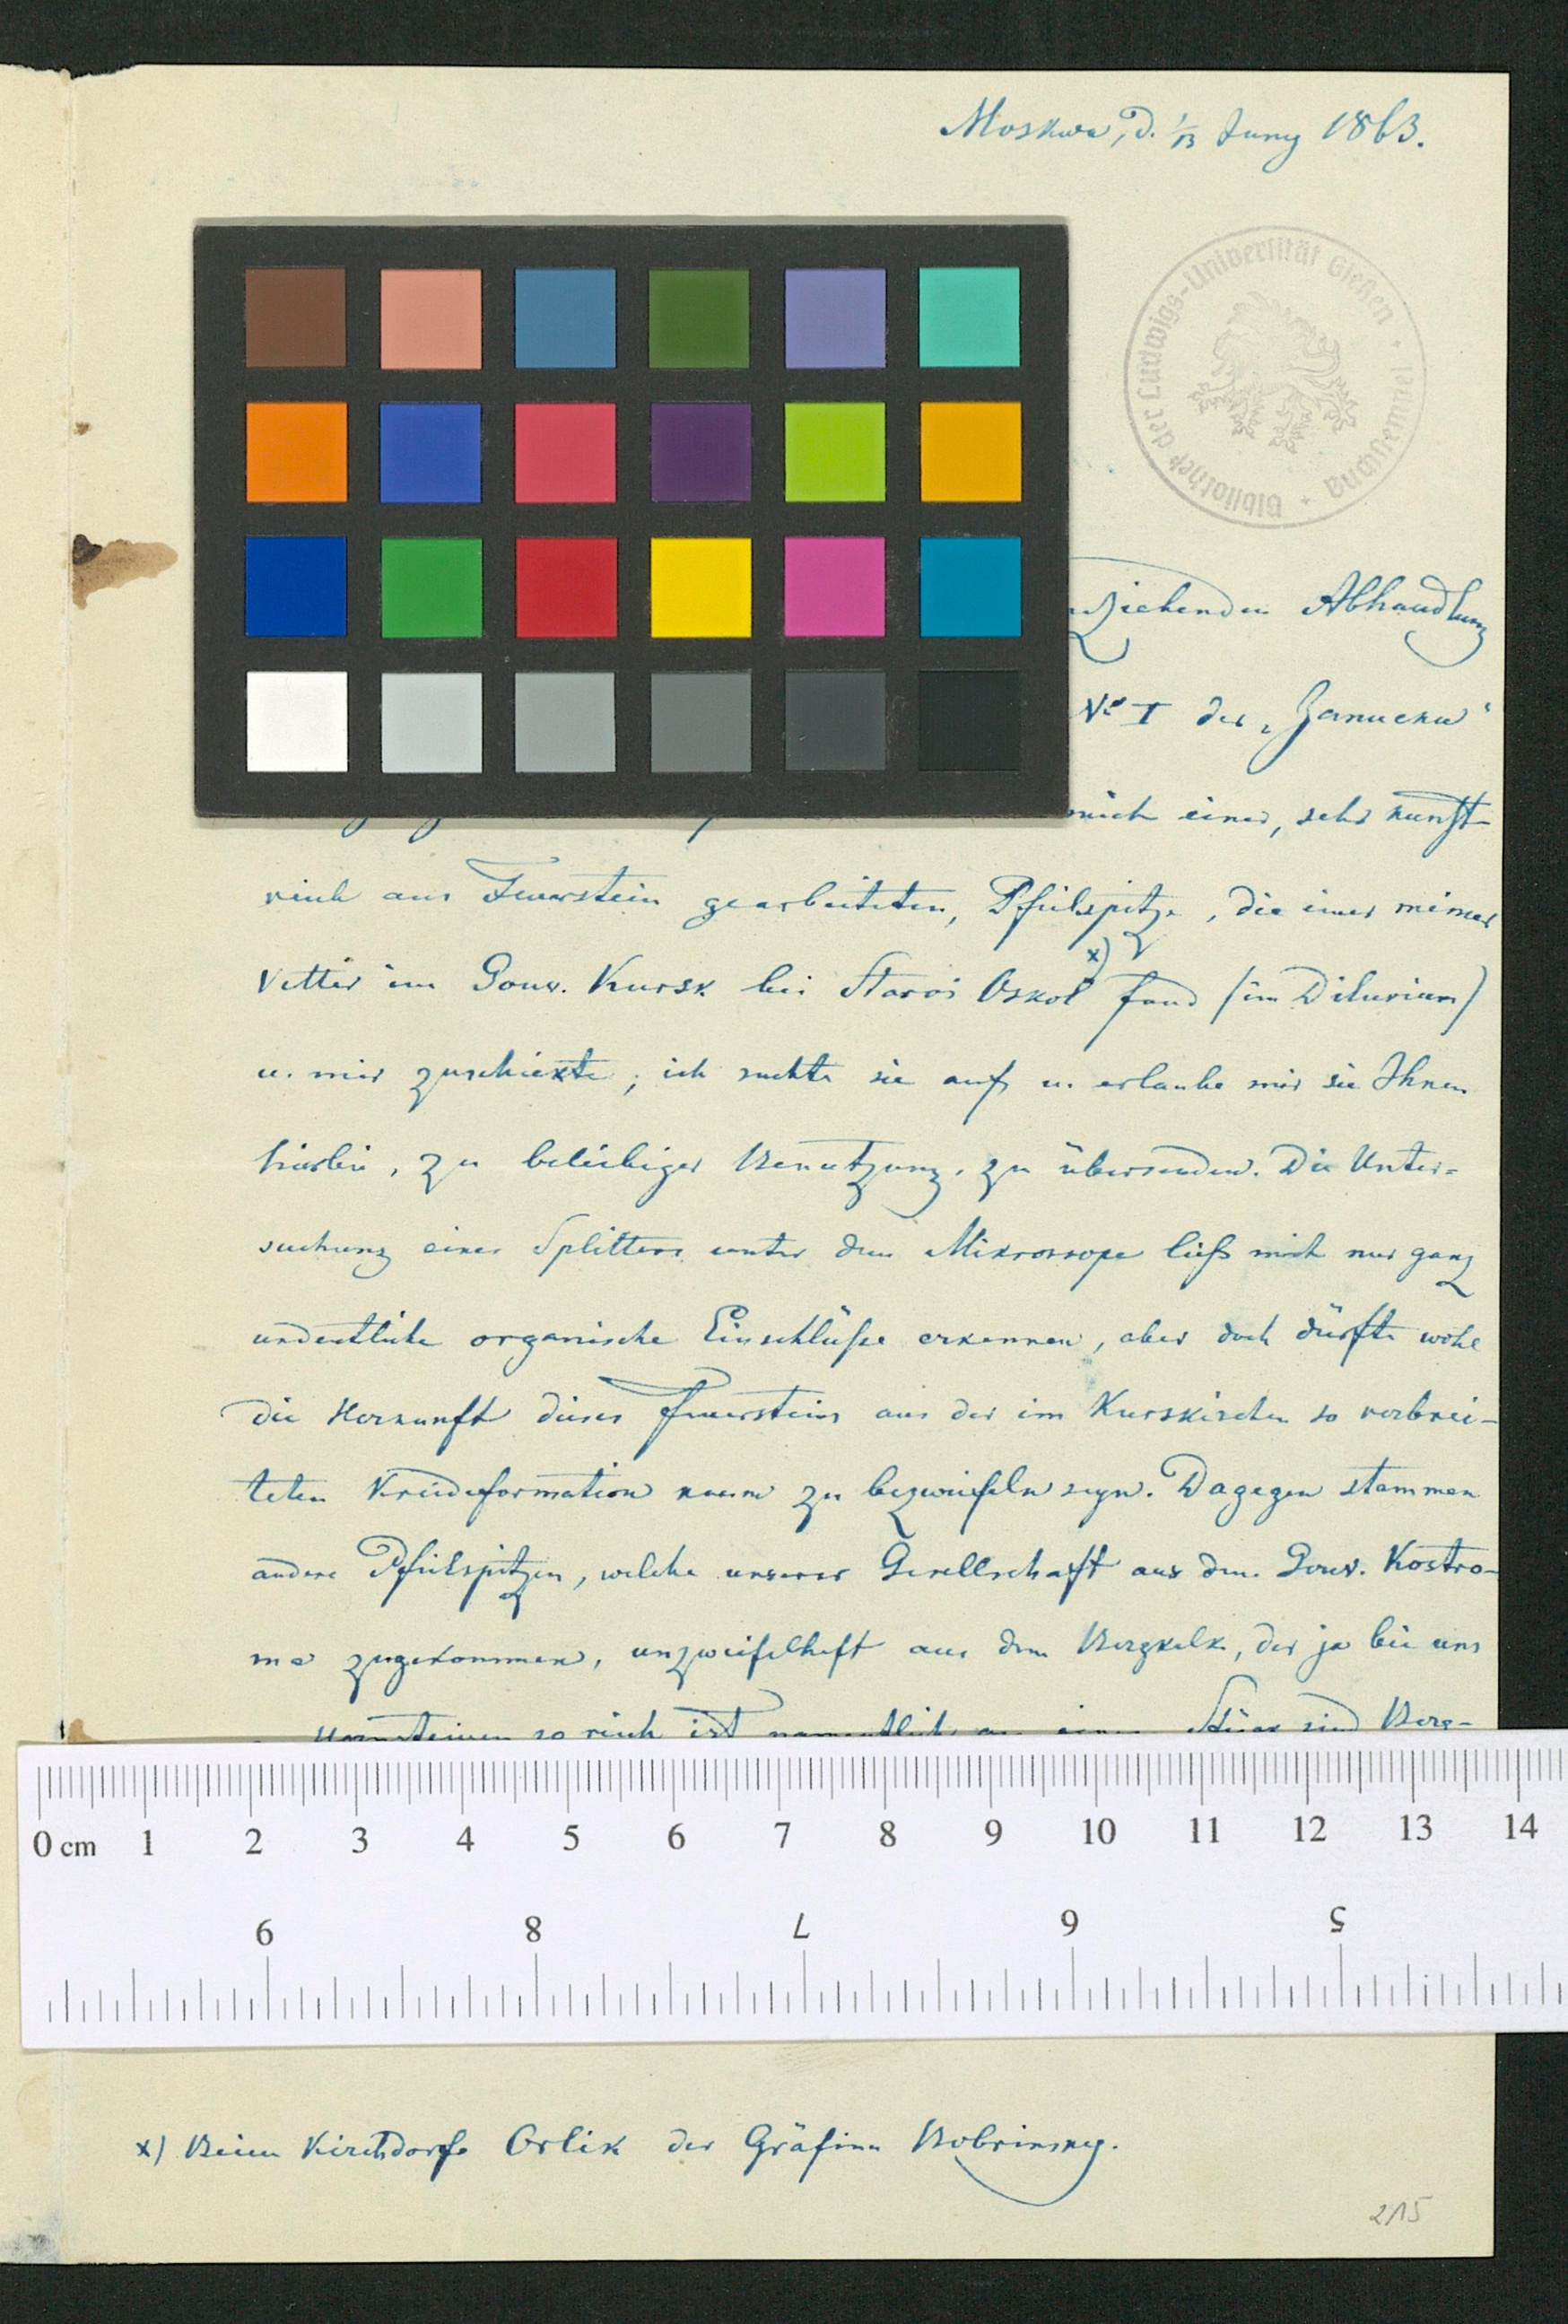 Moskwa, d. 1/13 Juny 1863.
Bibliothek der Ludwigs-Universität Gießen · Buchstempel ·
ziehenden Abhandlung
No I der „Записки“
mich einer, sehr kunst-
reich aus Feuerstein gearbeiteten, Pfeilspitze, die einer meiner
Vetter im Gouv. Kursk bei Staroi Oskol x) fand (im Diluvium)
u. mir zuschickte; ich suchte sie auf u. erlaube mir sie Ihnen
hierbei, zu beliebiger Benutzung, zu übersenden. Die Unter=
suchung eines Splitters unter dem Mikroskope ließ mich nur ganz
undeutliche organische Einschlüße erkennen, aber doch dürfte wohl
die Herkunft dieses Feuersteins aus der im Kurskischen so verbrei-
teten Kreideformation kaum zu bezweifeln seyn. Dagegen stammen
andere Pfeilspitzen, welche unserer Gesellschaft aus dem Gouv. Kostro-
ma zugekommen, unzweifelhaft aus dem Bergkalk, der ja bei uns
Hornsteinen so reich ist namentlich an einem Berg-
0 cm 1 2 3 4 5 6 7 8 9 10 11 12 13 14
9 8 7 6 5
x) Beim Kirchdorfe Orlik der Gräfinn Bobrinsky.
215